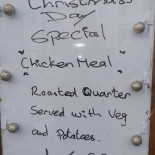 Christmas
Day
Special
"Chicken Meal"
Roasted Quarter
Served with Veg
and Potatoes.